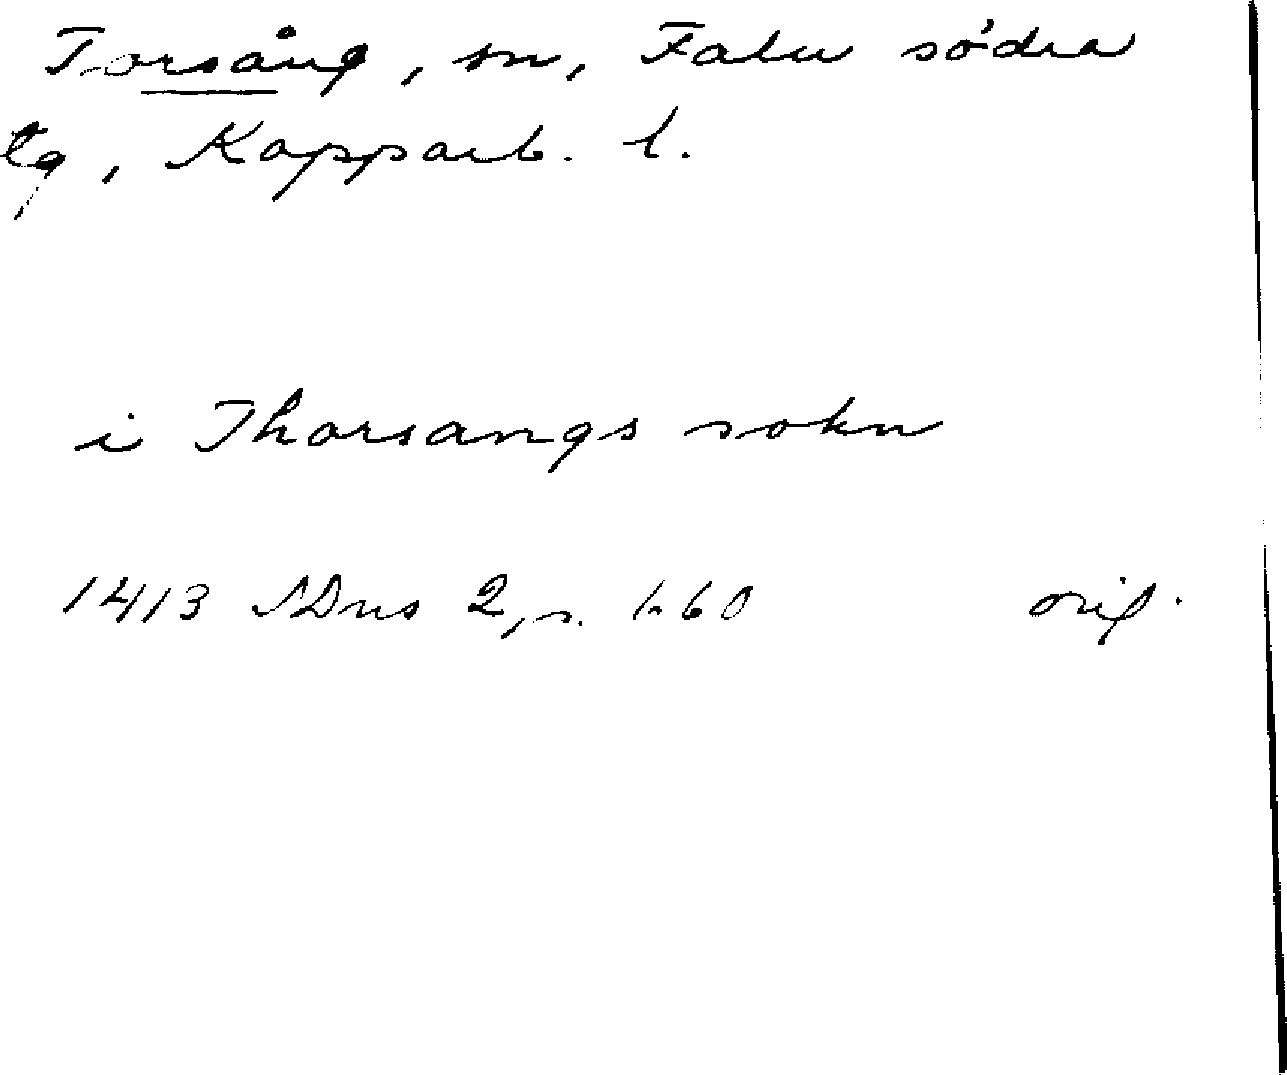 Torsång, sn, Falu södra
tg, Kopparb. l.
i Thorsangs sokn
1413 SDns 2, s. 660
orig.